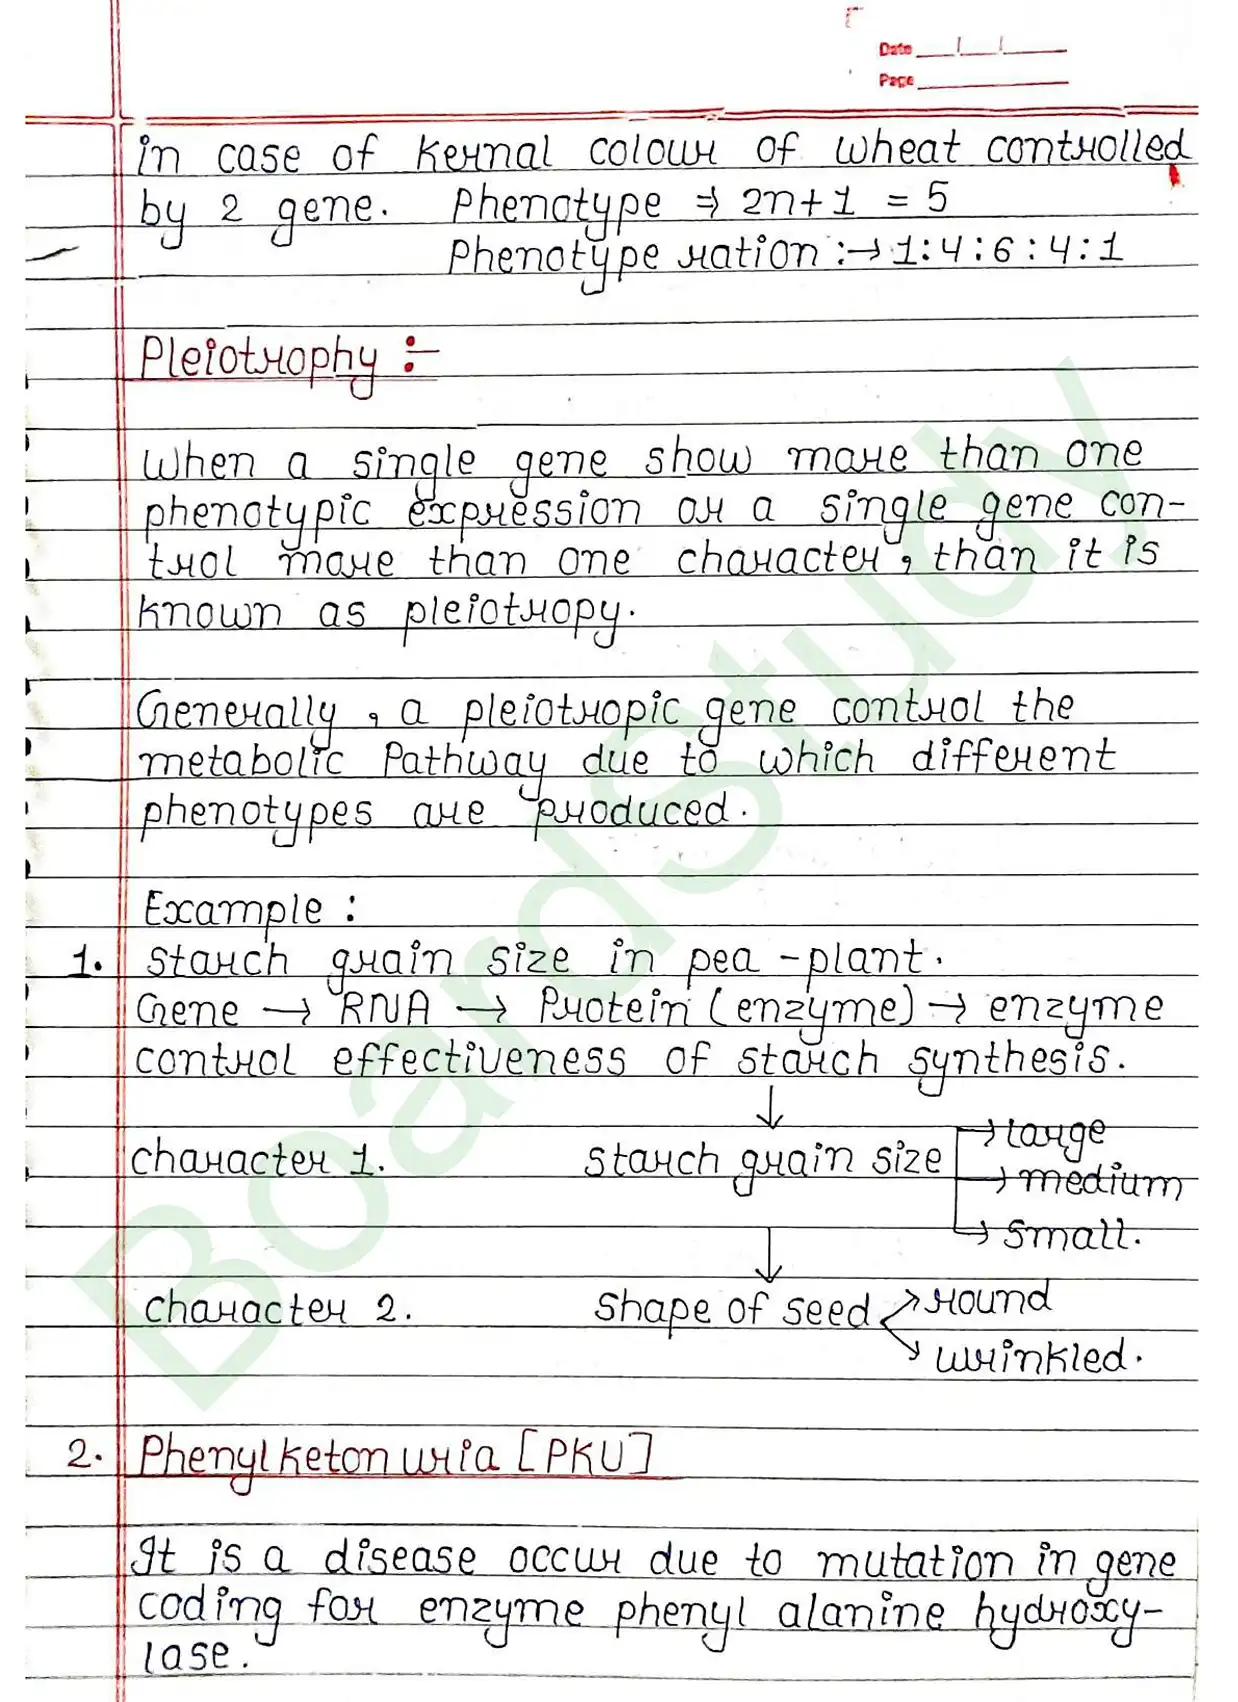 Date
Page
in case of kernal colour of wheat controlled
by 2 gene. Phenotype ⇒ 2n+1 = 5
Phenotype ration :→ 1:4:6:4:1
Pleiotrophy :-
When a single gene show more than one
phenotypic expression or a single gene con-
trol more than one character, than it is
known as pleiotropy.
Generally, a pleiotropic gene control the
metabolic Pathway due to which different
phenotypes are produced.
Example :
1. starch grain size in pea-plant.
Gene → RNA → Protein (enzyme) → enzyme
control effectiveness of starch synthesis.
↓
character 1. starch grain size → large
→ medium
→ small.
↓
character 2. shape of seed → round
→ wrinkled.
2. Phenylketonuria [PKU]
It is a disease occur due to mutation in gene
coding for enzyme phenyl alanine hydroxy-
lase.
BoardStudy